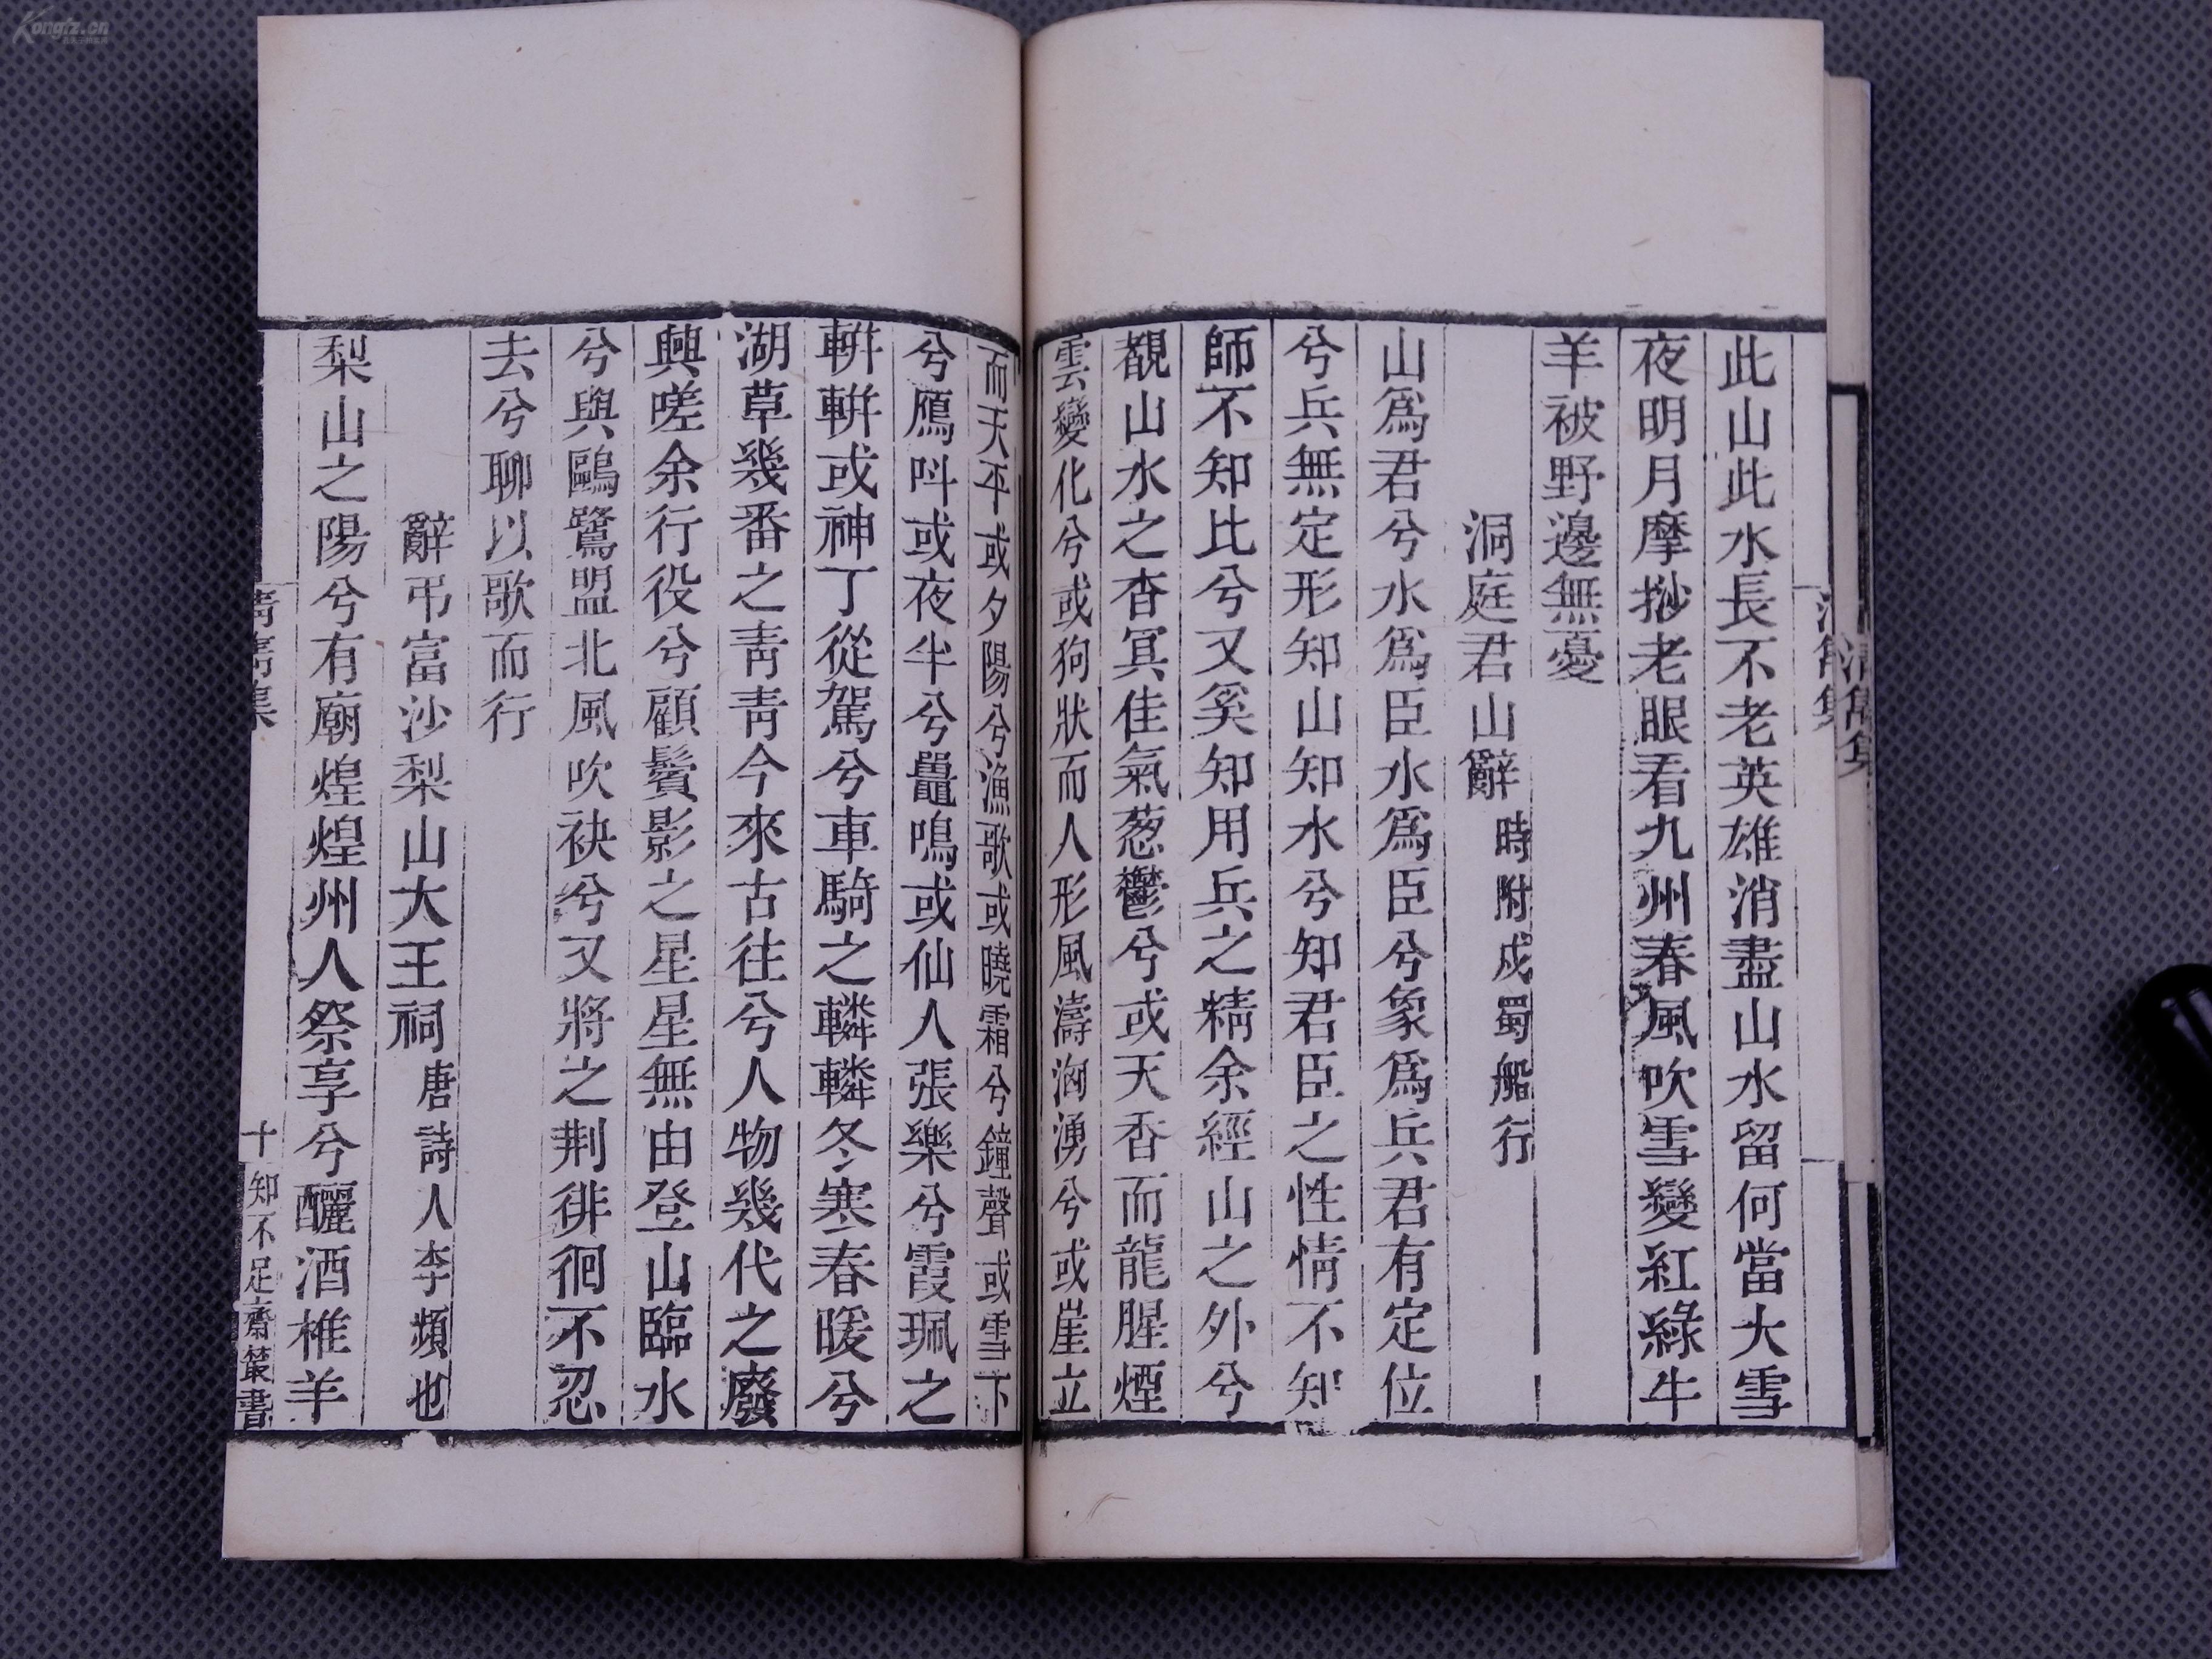 此山此水長不老英雄消盡山水留何當大雪
夜明月摩挱老眼看九州春風吹雪變紅綠牛
羊被野邊無憂
洞庭君山辭時附戍蜀船行
山爲君兮水爲臣水爲臣兮象爲兵君有定位
兮兵無定形知山知水兮知君臣之性情不知
師不知比兮又奚知用兵之精余經山之外兮
覩山水之杳冥佳氣葱鬱兮或天香而龍腥煙
雲變化兮或狗狀而人形風濤洶湧兮或崖立
而天平或夕陽兮漁歌或曉霜兮鐘聲或雪下
兮鴈呌或夜半兮鼉鳴或仙人張樂兮霞珮之
軿軿或神丁從駕兮車騎之轔轔冬寒春暖兮
湖草幾番之靑靑今來古往兮人物幾代之廢
興嗟余行役兮顧鬢影之星星無由登山臨水
兮與鷗鷺盟北風吹袂兮又將之荆徘徊不忍
去兮聊以歌而行
辭弔富沙梨山大王祠唐詩人李頻也
梨山之陽兮有廟煌煌州人祭享兮釃酒椎羊
十 知不足齋叢書
Kongfz.cn